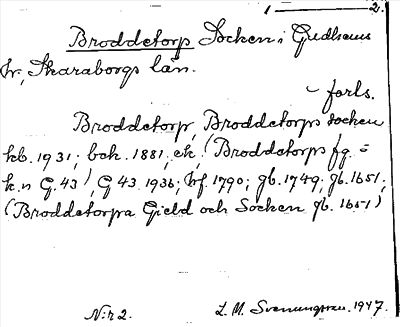 1 — 2.
Broddetorp Socken i Gudhems
hr, Skaraborgs län.
– forts.
Broddetorp, Broddetorps socken
kb. 1931; bok. 1881, ek. (Broddetorps fg. =
k.n G. 43), G 43 1936; hf. 1790; gb. 1749, gb. 1651;
(Broddetorpa Gield och Socken gb. 1651)
N:r 2.
L. M. Svenungsson. 1947.